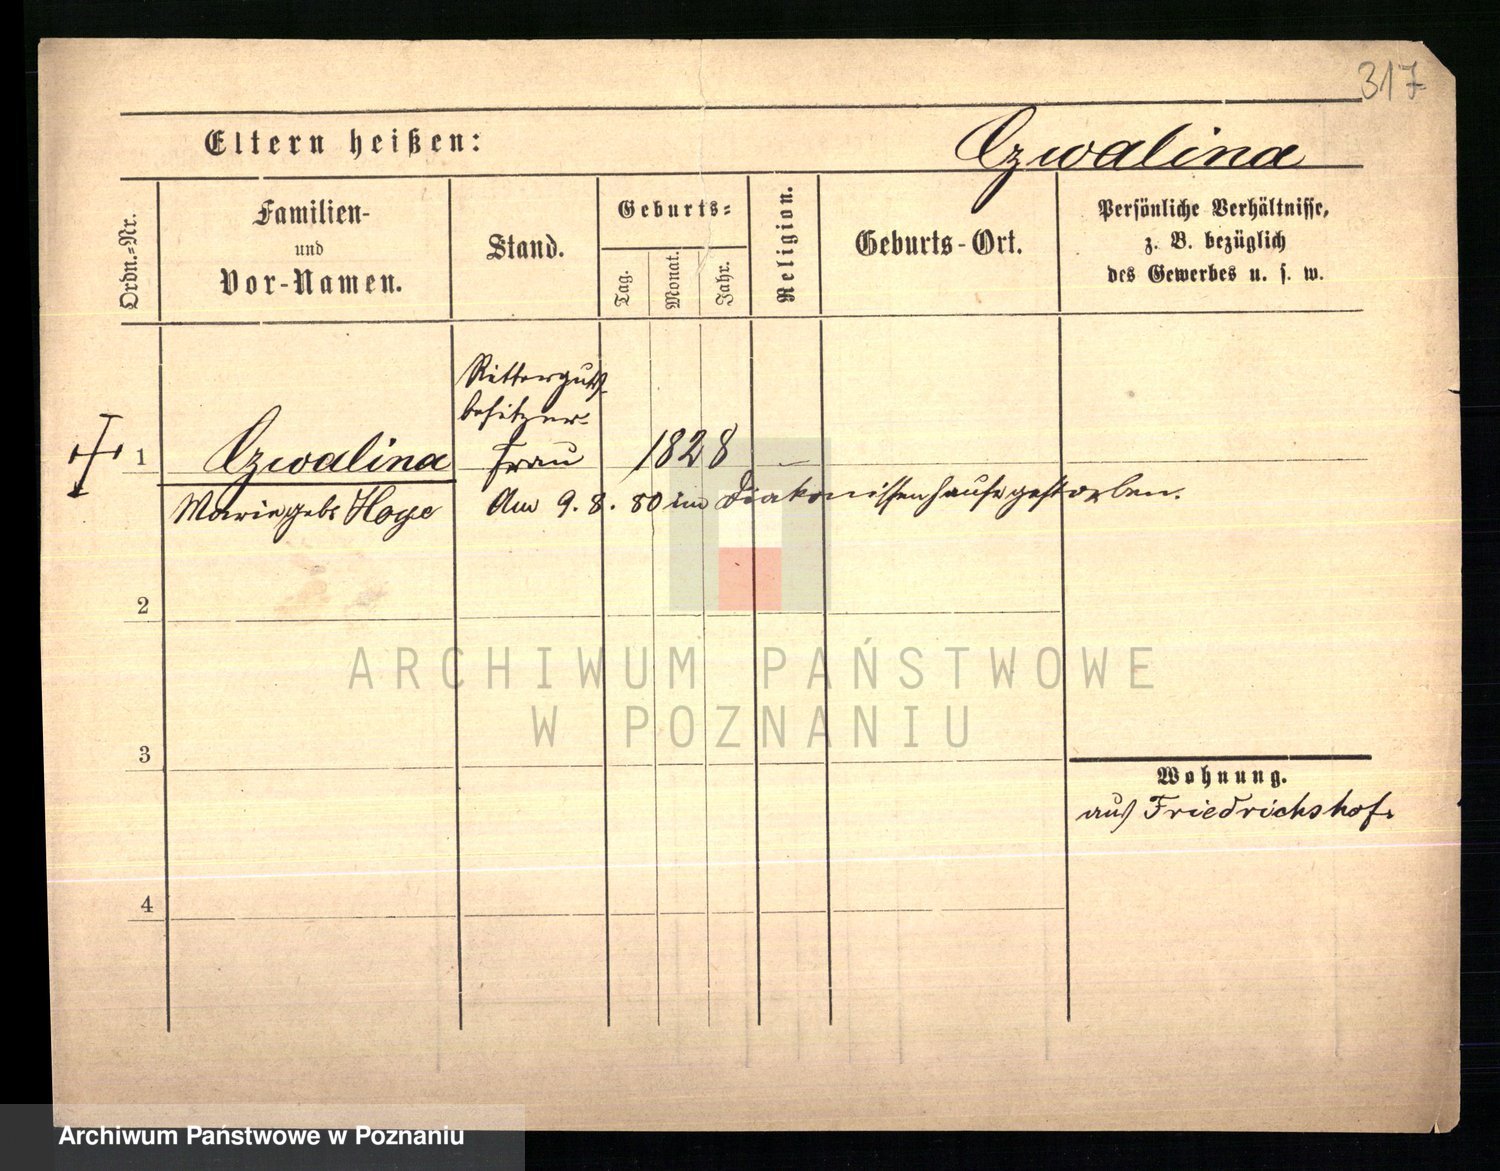 317
Eltern heißen: Czwalina
Ordn.-Nr.
Familien-
und
Vor-Namen.
Stand.
Geburts-
Tag.
Monat.
Jahr.
Religion.
Geburts-Ort.
Persönliche Verhältnisse,
z. B. bezüglich
des Gewerbes u. s. w.
Ritterguts-
besitzer-
1 Czwalina Frau 1828 –
Marie geb. Hoye Am 9. 8. 80 im Diakonissenhause gestorben.
2
3
Wohnung.
aus Friedrichshof.
4
ARCHIWUM PAŃSTWOWE
W POZNANIU
Archiwum Państwowe w Poznaniu